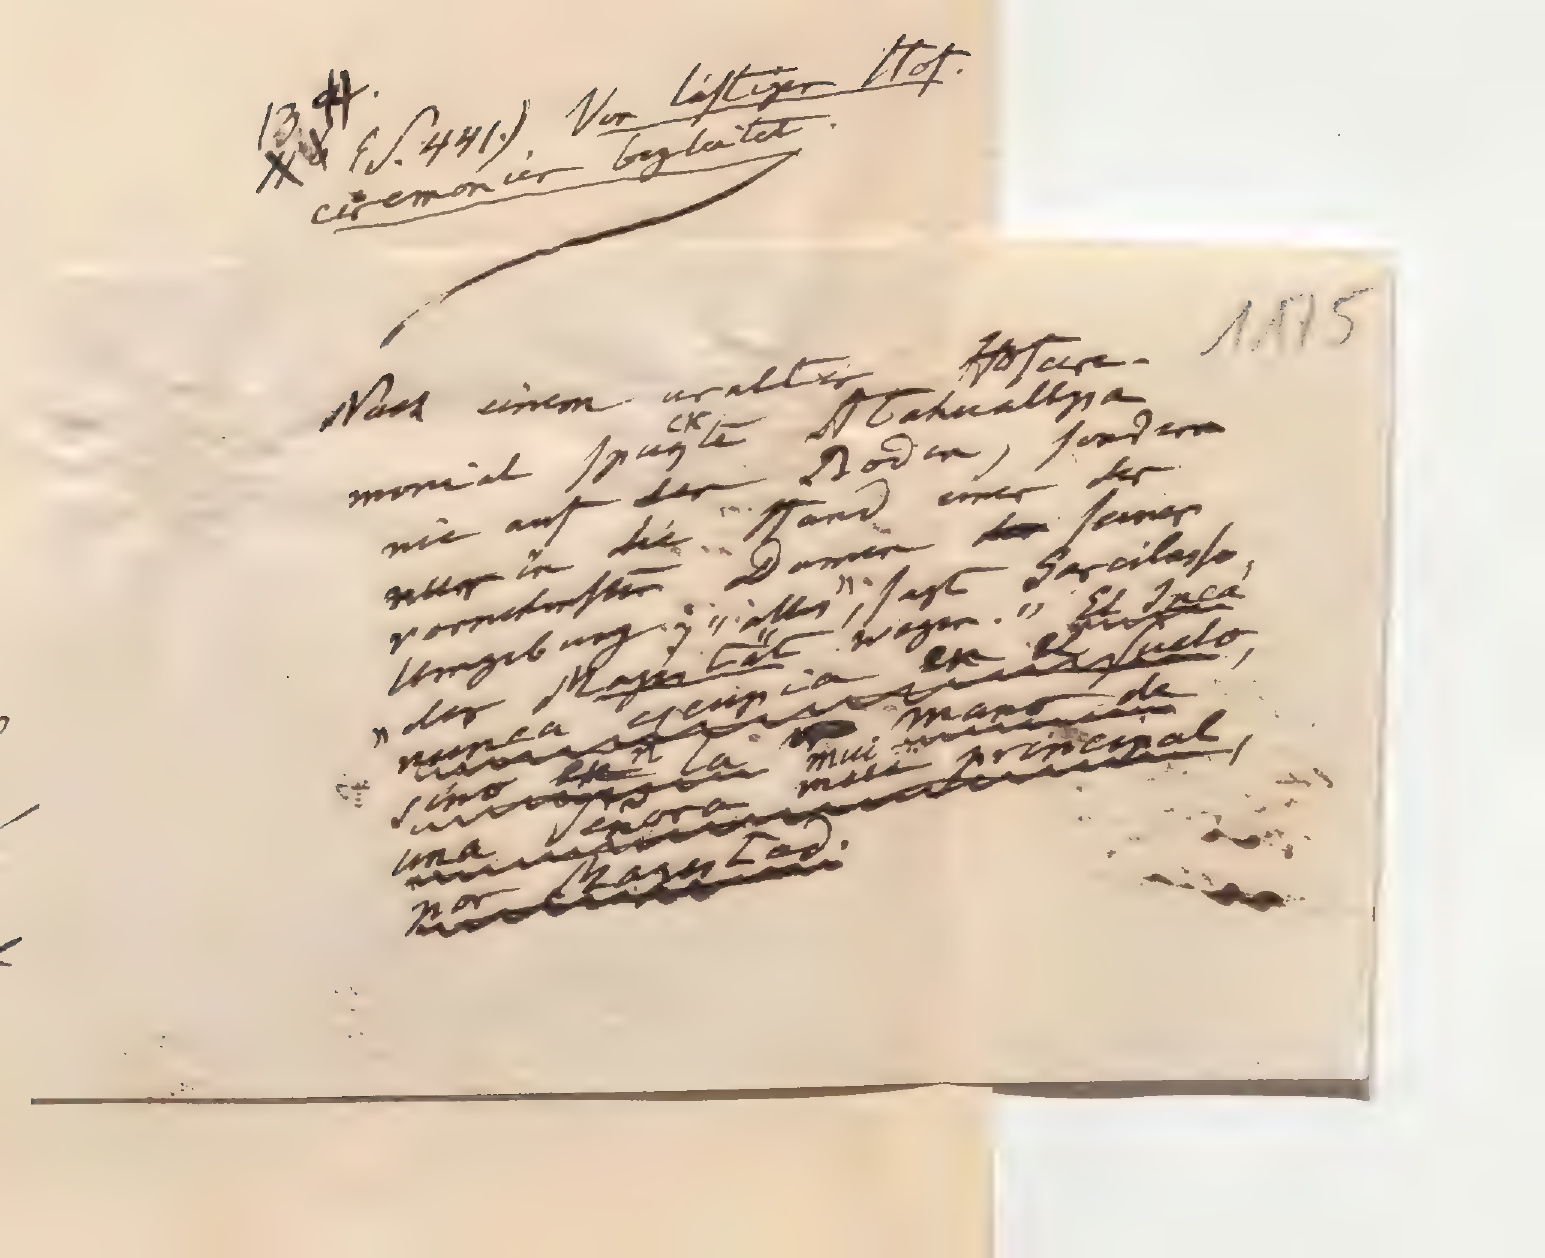 13. H.
(S. 441.) Von lästigem Hof-
ceremoniel begleitet.
1175
Nach einem uralten Hofcere-
moniel spuckte Atahuallpa
nie auf den Boden, sondern
nur in die Hand einer der
vornehmsten Damen seiner
Umgebung; „alles", sagt Garcilasso,
„der Majestät wegen." El Inca
nunca escupia en el suelo,
sino en la mano de
una Señora mui principal,
por Magestad.